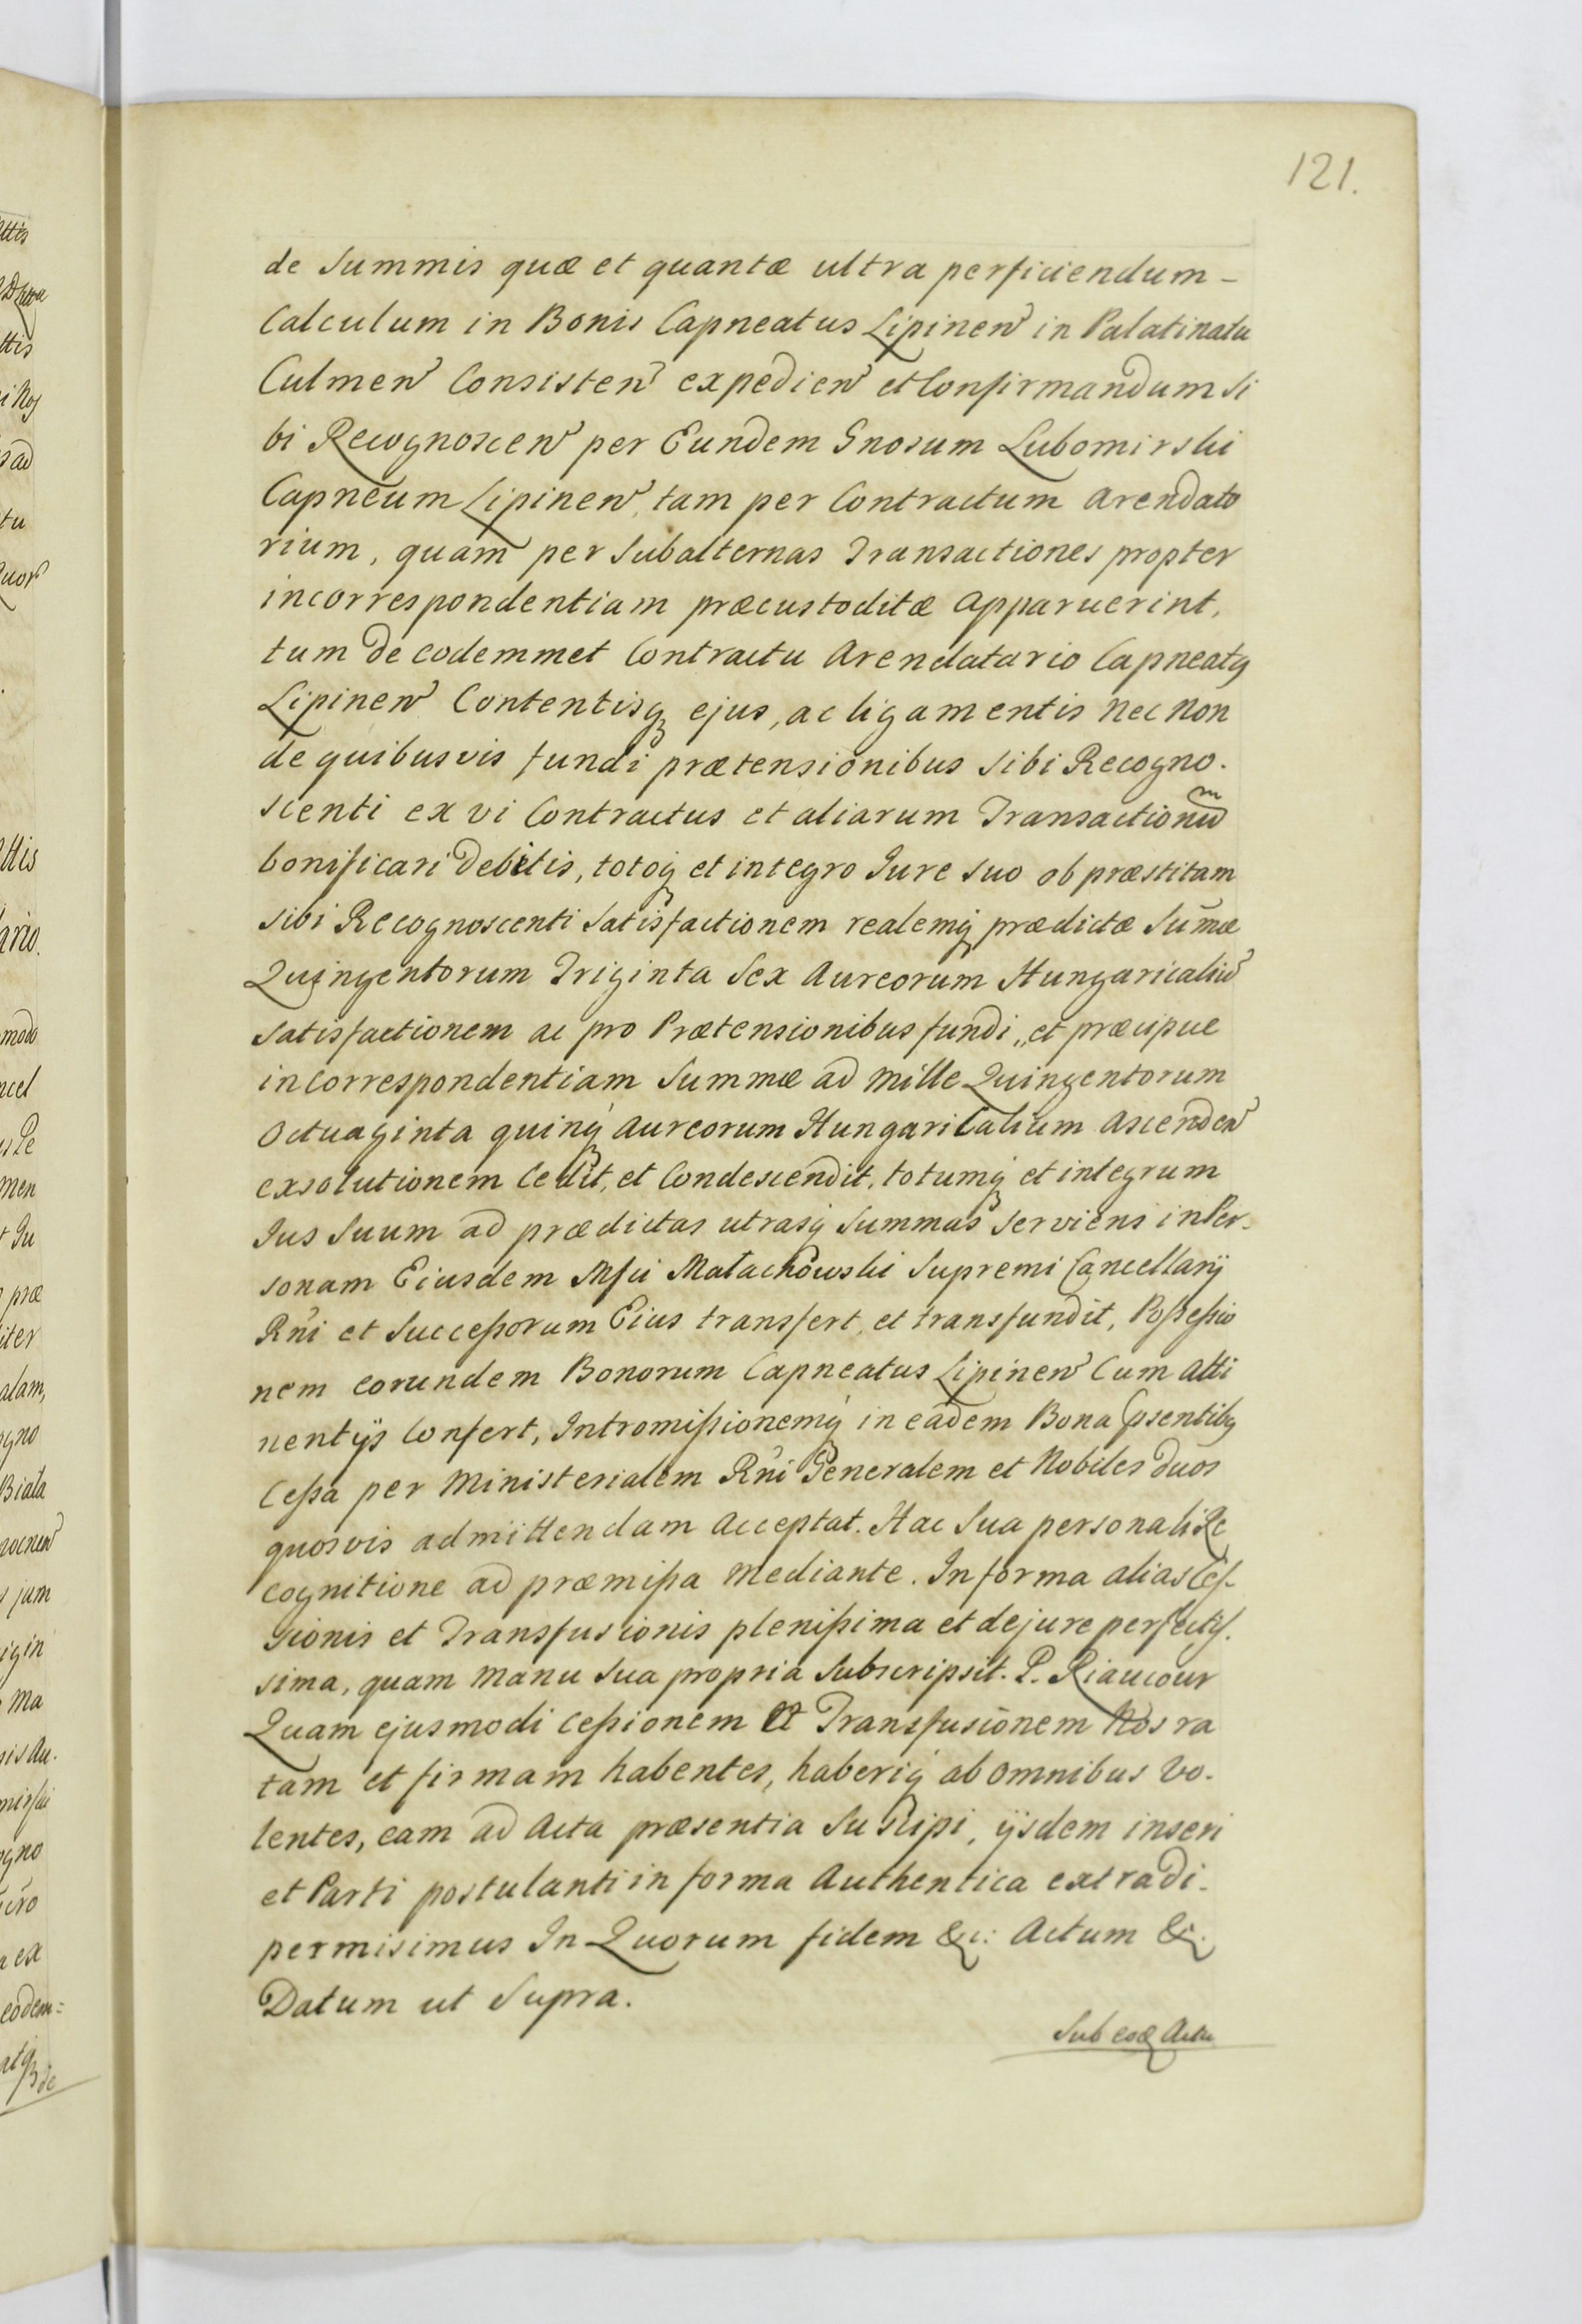 121.
de Summis quæ et quantæ ultra perficiendum-
Calculum in Bonis Capneatus Lipinen̄ in Palatinatu
Culmen̄ Consisten̄ expedien̄ et Confirmandum Si
bi Recognoscen̄ per Eundem Gnosum Lubomirski
Capneum Lipinen̄, tam per Contractum Arendato
rium, quam per Subalternas Transactiones propter
incorrespondentiam præcustoditæ Apparuerint,
tum de eodemmet Contractu Arendatario Capneatq
Lipinen̄ Contentisq ejus, ac ligamentis nec non
de quibusvis fundi prætensionibus Sibi Recogno.
scenti ex vi Contractus et aliarum Transactionu͂m
bonificari debitis, totoq et integro Jure Suo ob præstitam
Sibi Recognoscenti Satisfactionem realemq prædictæ Sum̄æ
Quingentorum Triginta Sex Aureorum Hungaricaliu͂
Satisfactionem ac pro Prætensionibus fundi,, et præcipue
incorrespondentiam Summæ ad Mille Quingentorum
Octuaginta quinq Aureorum Hungaricalium Ascenden̄
exsolutionem Cedit, et Condescendit, totumq et integrum
Jus Suum ad prædictas utrasq Summas Serviens in Per-
sonam Eiusdem Mfci Małachowski Supremi Cancellarij
Rn̄i et Successorum Eius transfert, et transfundit, Possessio
nem eorundem Bonorum Capneatus Lipinen̄ Cum Atti
nentijs Confert, Intromissionemq in eadem Bona Psentibq
Cessa per Ministerialem Rn̄i Generalem et Nobiles duos
quosvis admittendam Acceptat. Hac Sua personali Re
cognitione ad præmissa Mediante. In forma alias Ces-
sionis et Transfusionis plenissima et de jure perfectis.
sima, quam Manu Sua propria Subscripsit. P. Riaucour
Quam ejusmodi Cessionem Et Transfusionem Nos ra
tam et firmam habentes, haberiq ab Omnibus Vo-
lentes, eam ad Acta præsentia Suscipi, ijsdem inseri
et Parti postulanti in forma Authentica extradi-
permisimus In Quorum fidem &c: Actum &c.
Datum ut Supra.
Sub eoq Actu